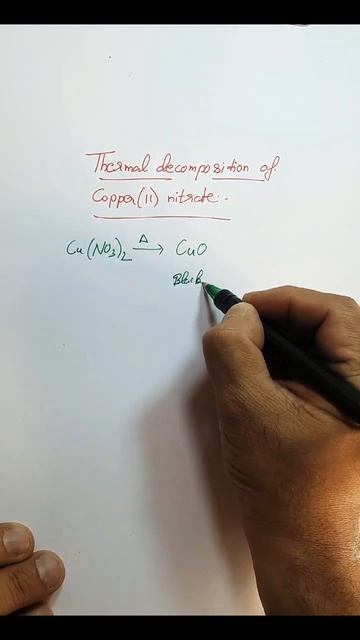 Thermal decomposition of
Copper(II) nitrate:-
Cu(NO₃)₂ —Δ→ CuO
Black